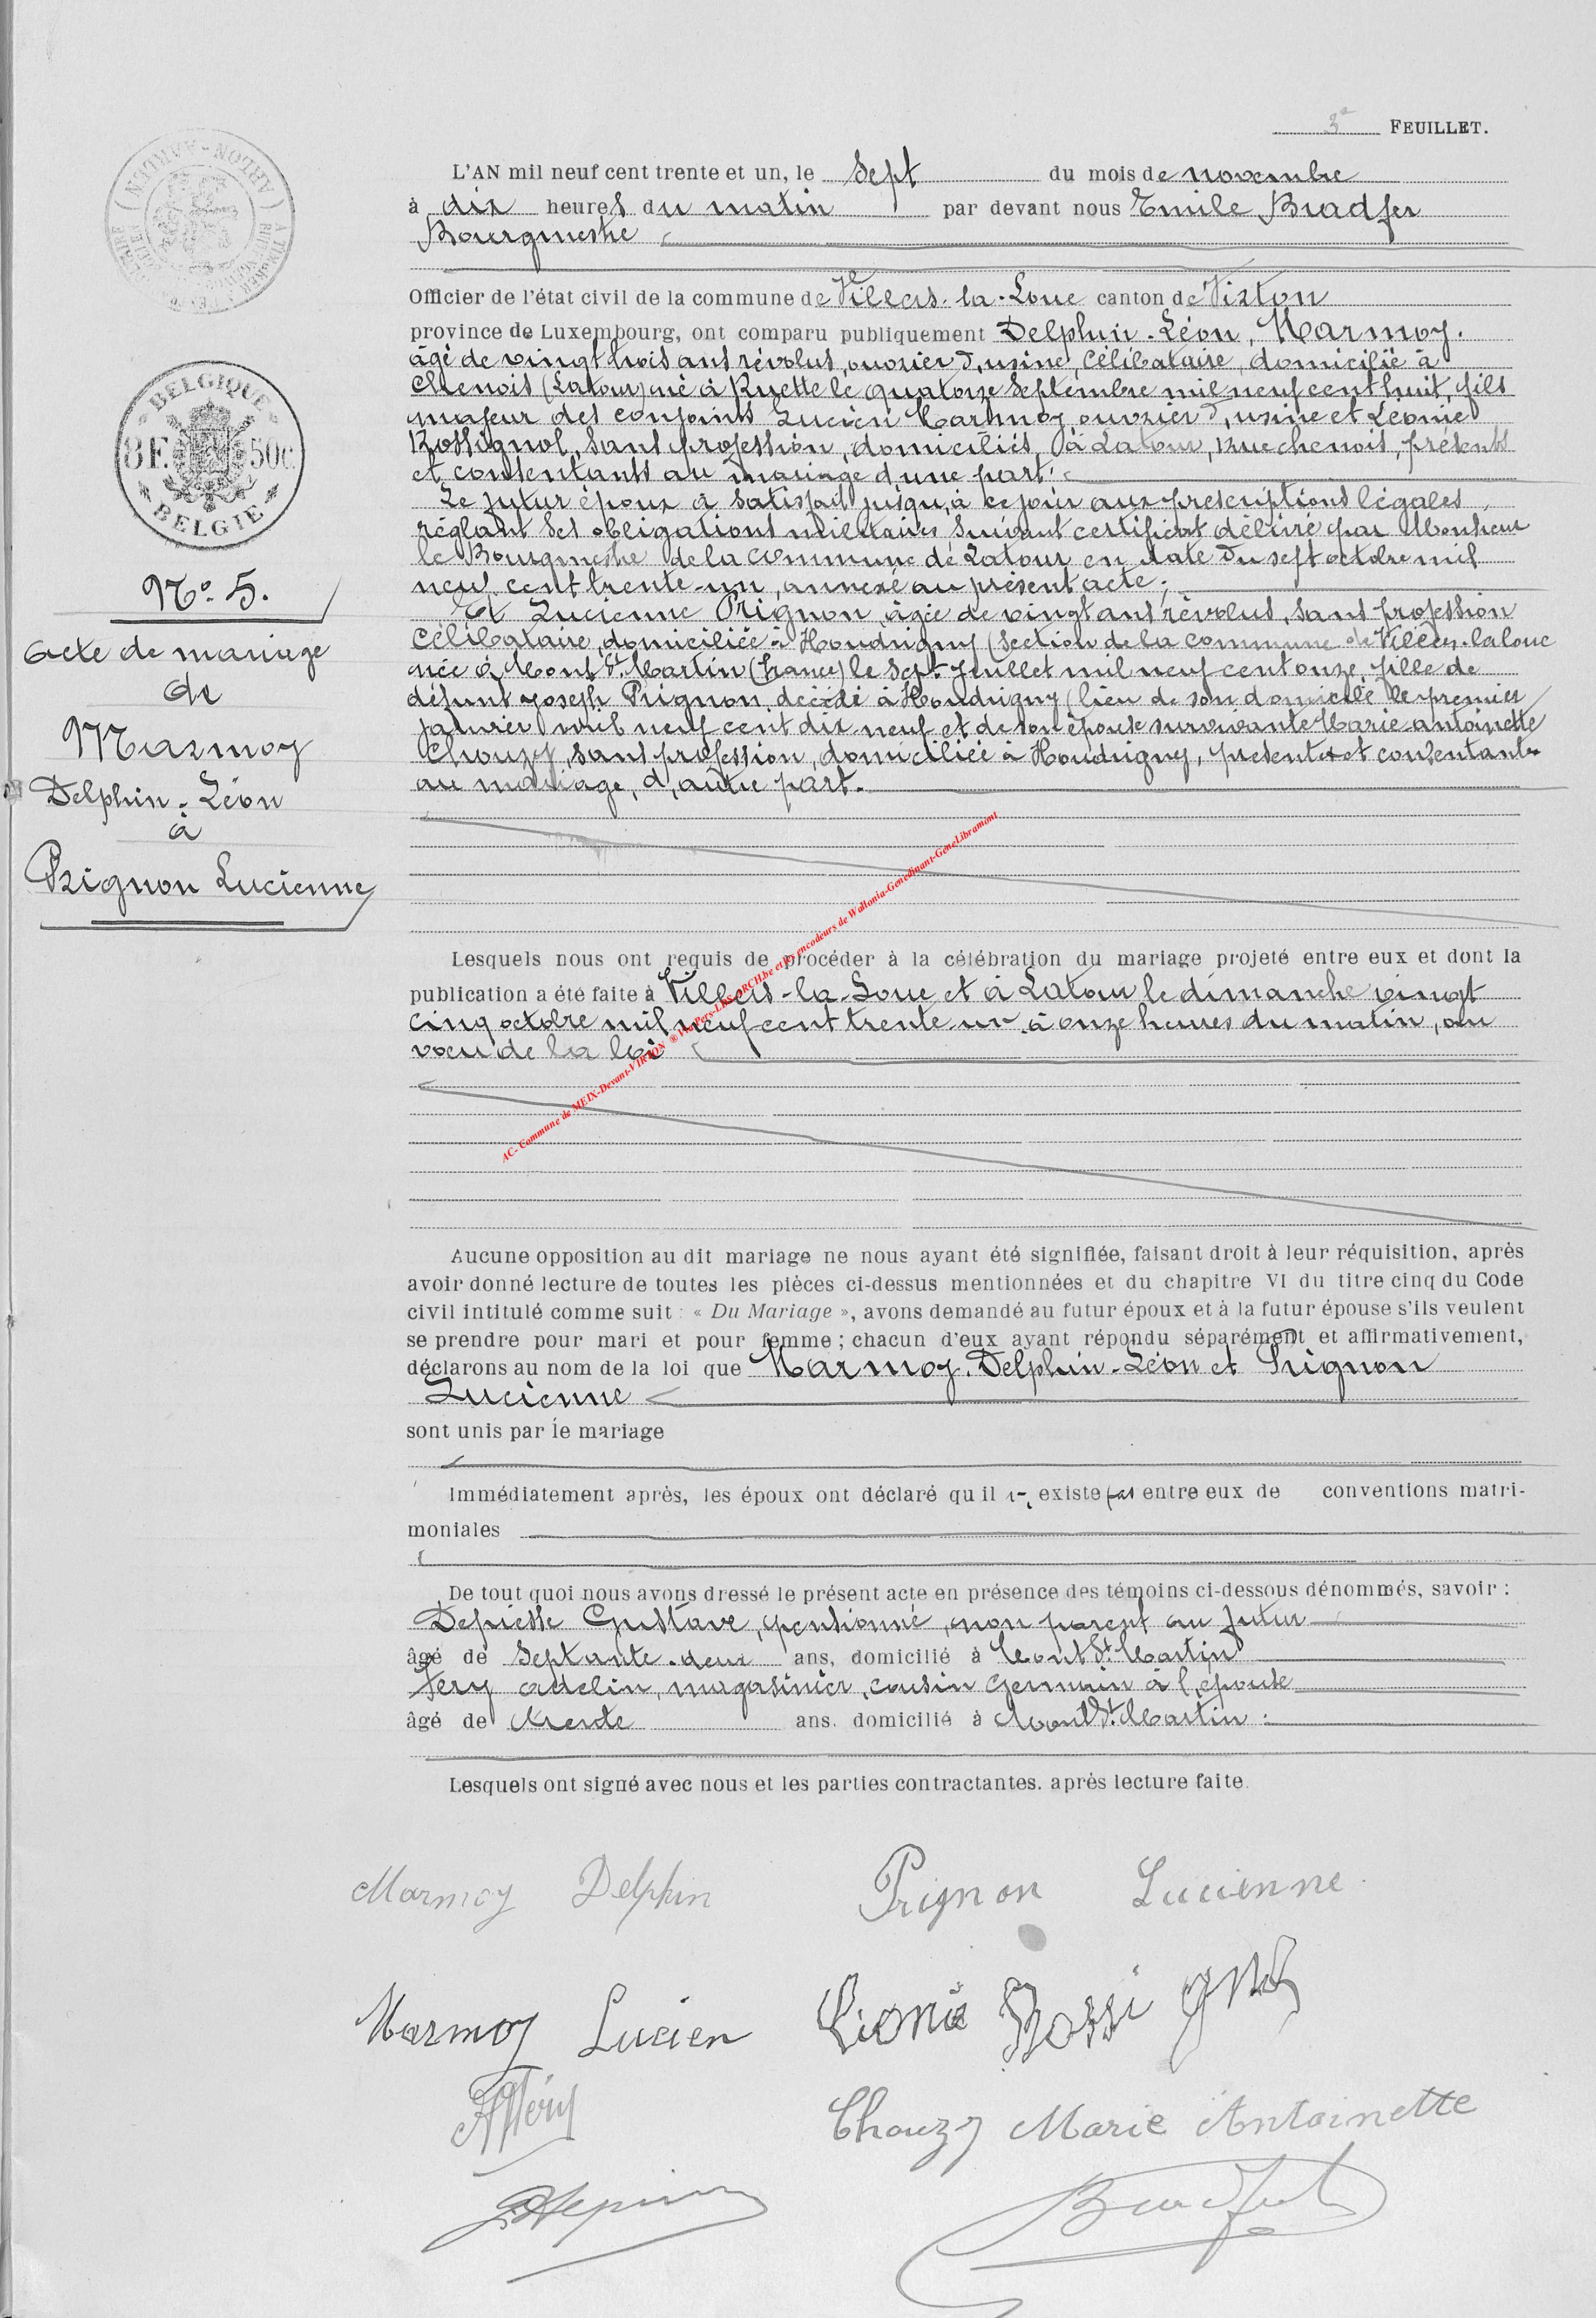 3e FEUILLET.
L'AN mil neuf cent trente et un, le sept du mois de novembre
à dix heures du matin par devant nous Emile Bradfer
Bourgmestre
Officier de l'état civil de la commune de Villers-la-Loue canton de Virton
province de Luxembourg, ont comparu publiquement Delphin-Léon, Marmoy.
âgé de vingt trois ans révolus, ouvrier d'usine, célibataire, domicilié à
Chenois (Latour) né à Ruette le quatorze septembre mil neuf cent huit, fils
majeur des conjoints Lucien Marmoy ouvrier d'usine et Léonie
Rossignol, sans profession, domiciliés, à Latour, rue chenois, présents
et consentants au mariage d'une part.
Le futur époux a satisfait jusqu'à ce jour aux prescriptions légales
réglant ses obligations militaires suivant certificat délivré par Monsieur
le Bourgmestre de la commune de Latour en date du sept octobre mil
neuf cent trente-un, annexé au présent acte;
Et Lucienne Prignon, âgée de vingt ans révolus, sans profession
célibataire, domiciliée à Houdrigny (section de la commune de Villers-la loue
née à Mont St Martin (France) le sept Juillet mil neuf cent onze, fille de
défunt Joseph Prignon, décédé à Houdrigny (lieu de son domicile le premier
janvier mil neuf cent dix neuf et de son épouse survivante Marie-antoinette
Chouzy, sans profession, domiciliée à Houdrigny, présente et consentante
au mariage, d'autre part.
BELGIQUE
8F. 50c.
BELGIE
No. 5.
Acte de mariage
de
Marmoy
Delphin-Léon
à
Prignon Lucienne
Lesquels nous ont requis de procéder à la célébration du mariage projeté entre eux et dont la
publication a été faite à Villers-la-Loue et à Latour le dimanche vingt
cinq octobre mil neuf cent trente un à onze heures du matin, au
vœu de la loi
AC- Commune de MEIX-Devant-VIRTON ® Via Pers-LBS-ARCH.be et les encodeurs de Wallonia-Genedinant-GeneLibramont
Aucune opposition au dit mariage ne nous ayant été signifiée, faisant droit à leur réquisition, après
avoir donné lecture de toutes les pièces ci-dessus mentionnées et du chapitre VI du titre cinq du Code
civil intitulé comme suit : « Du Mariage », avons demandé au futur époux et à la futur épouse s'ils veulent
se prendre pour mari et pour femme ; chacun d'eux ayant répondu séparément et affirmativement,
déclarons au nom de la loi que Marmoy. Delphin-Léon et Prignon
Lucienne
sont unis par le mariage
Immédiatement après, les époux ont déclaré qu'il n'existe pas entre eux de conventions matri-
moniales
De tout quoi nous avons dressé le présent acte en présence des témoins ci-dessous dénommés, savoir :
Depiesse Gustave, pensionné, non parent au futur
âgé de septante-deux ans, domicilié à Mont St. Martin
Fery adelin, magasinier, cousin germain à l'épouse
âgé de trente ans. domicilié à Mont St. Martin.
Lesquels ont signé avec nous et les parties contractantes. après lecture faite.
Marmoy Delphin Prignon Lucienne.
Marmoy Lucien Léonie Rossignol
AFféry Chouzy Marie Antoinette
Bradfer